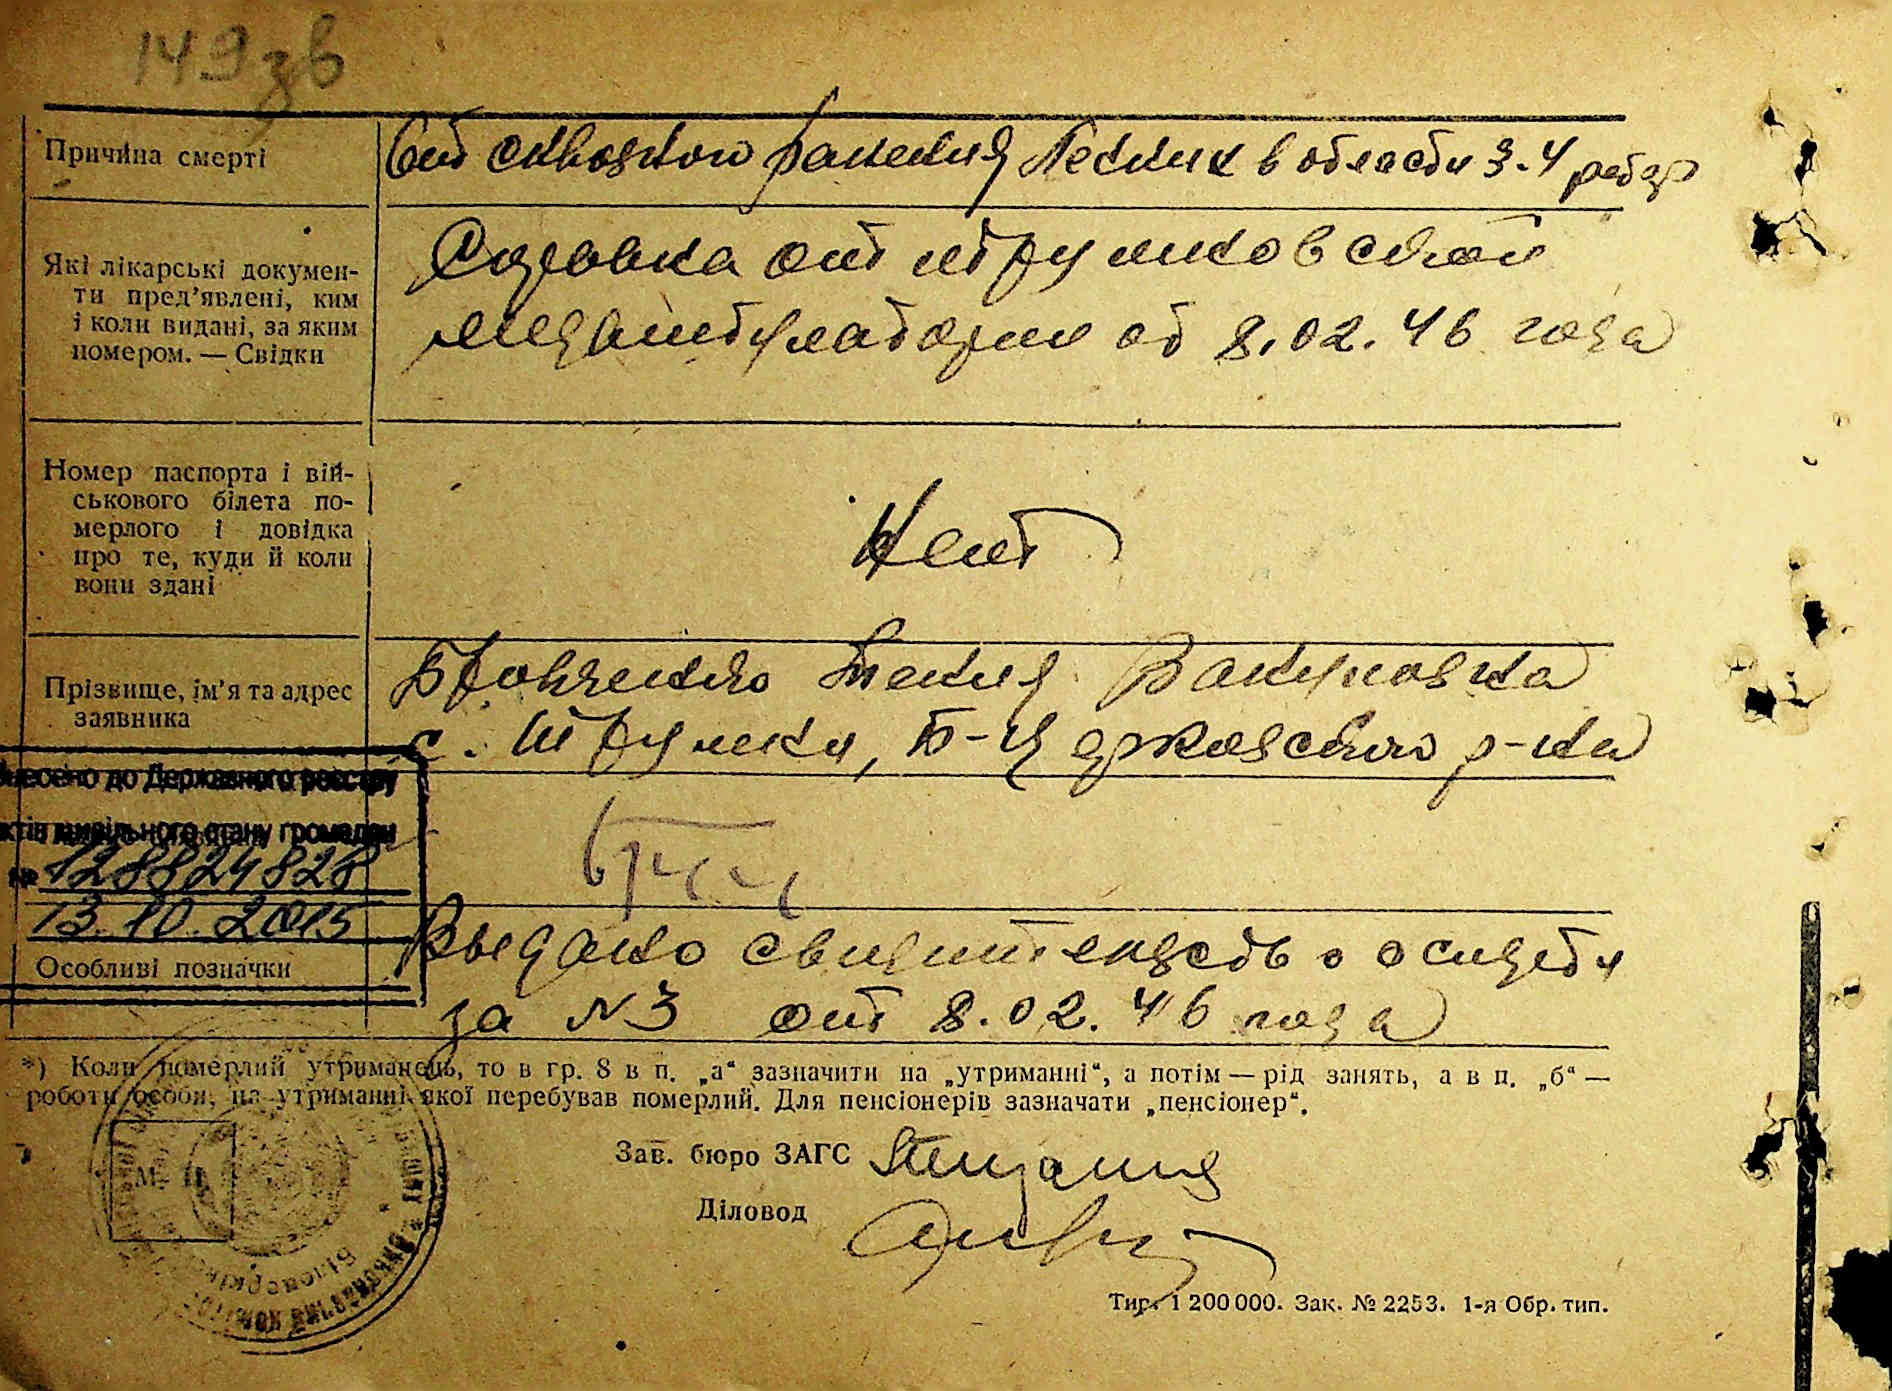 149 зв
Причина смерти
От сквозного ранения легких в области 3-4 ребер
Які лікарські докумен-
ти пред'явлені, ким
і коли видані, за яким
номером. — Свідки
Справка от
медамбулатории от 8.02.46 года
Номер паспорта і вій-
ськового білета по-
мерлого і довідка
про те, куди й коли
вони здані
Нет
Прізвище, ім'я та адрес
заявника
с. Б-Церковского р-на
Внесено до Державного реєстру
актів цивільного стану громадян
№ 128824828
13.10.2015
Особливі позначки
Выдано свидетельство о смерти
за №3 от 8.02.46 года
*) Коли померлий утриманець, то в гр. 8 в п. „а“ зазначити на „утриманні“, а потім — рід занять, а в п. „б“ —
роботи особи, на утриманні якої перебував померлий. Для пенсіонерів зазначати „пенсіонер“.
М. П.
Зав. бюро ЗАГС
Діловод
Тир. 1 200 000. Зак. № 2253. 1-я Обр. тип.